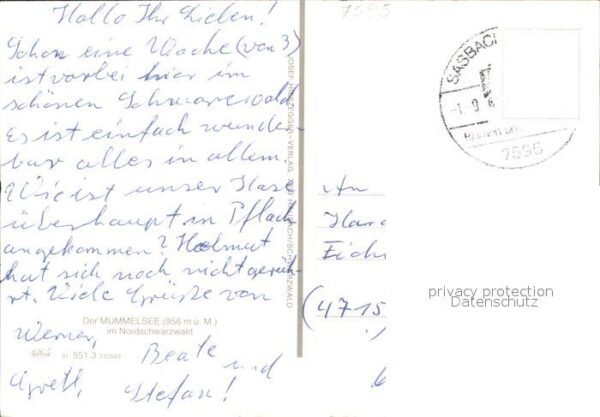 Hallo Ihr Lieben!
Schon eine Woche (von 3)
ist vorbei hier im
schönen Schwarzwald
Es ist einfach wunder-
bar alles in allem.
Wie ist unser
überhaupt in
angekommen? Helmut
hat sich noch nicht gerüh-
rt. Viele Grüße von
Werner,
Beate
und
Stefan!
Der MUMMELSEE (956 m ü. M.)
im Nordschwarzwald
51 551.3
7595
SASBACH
7595
An
(4715
privacy protection
Datenschutz